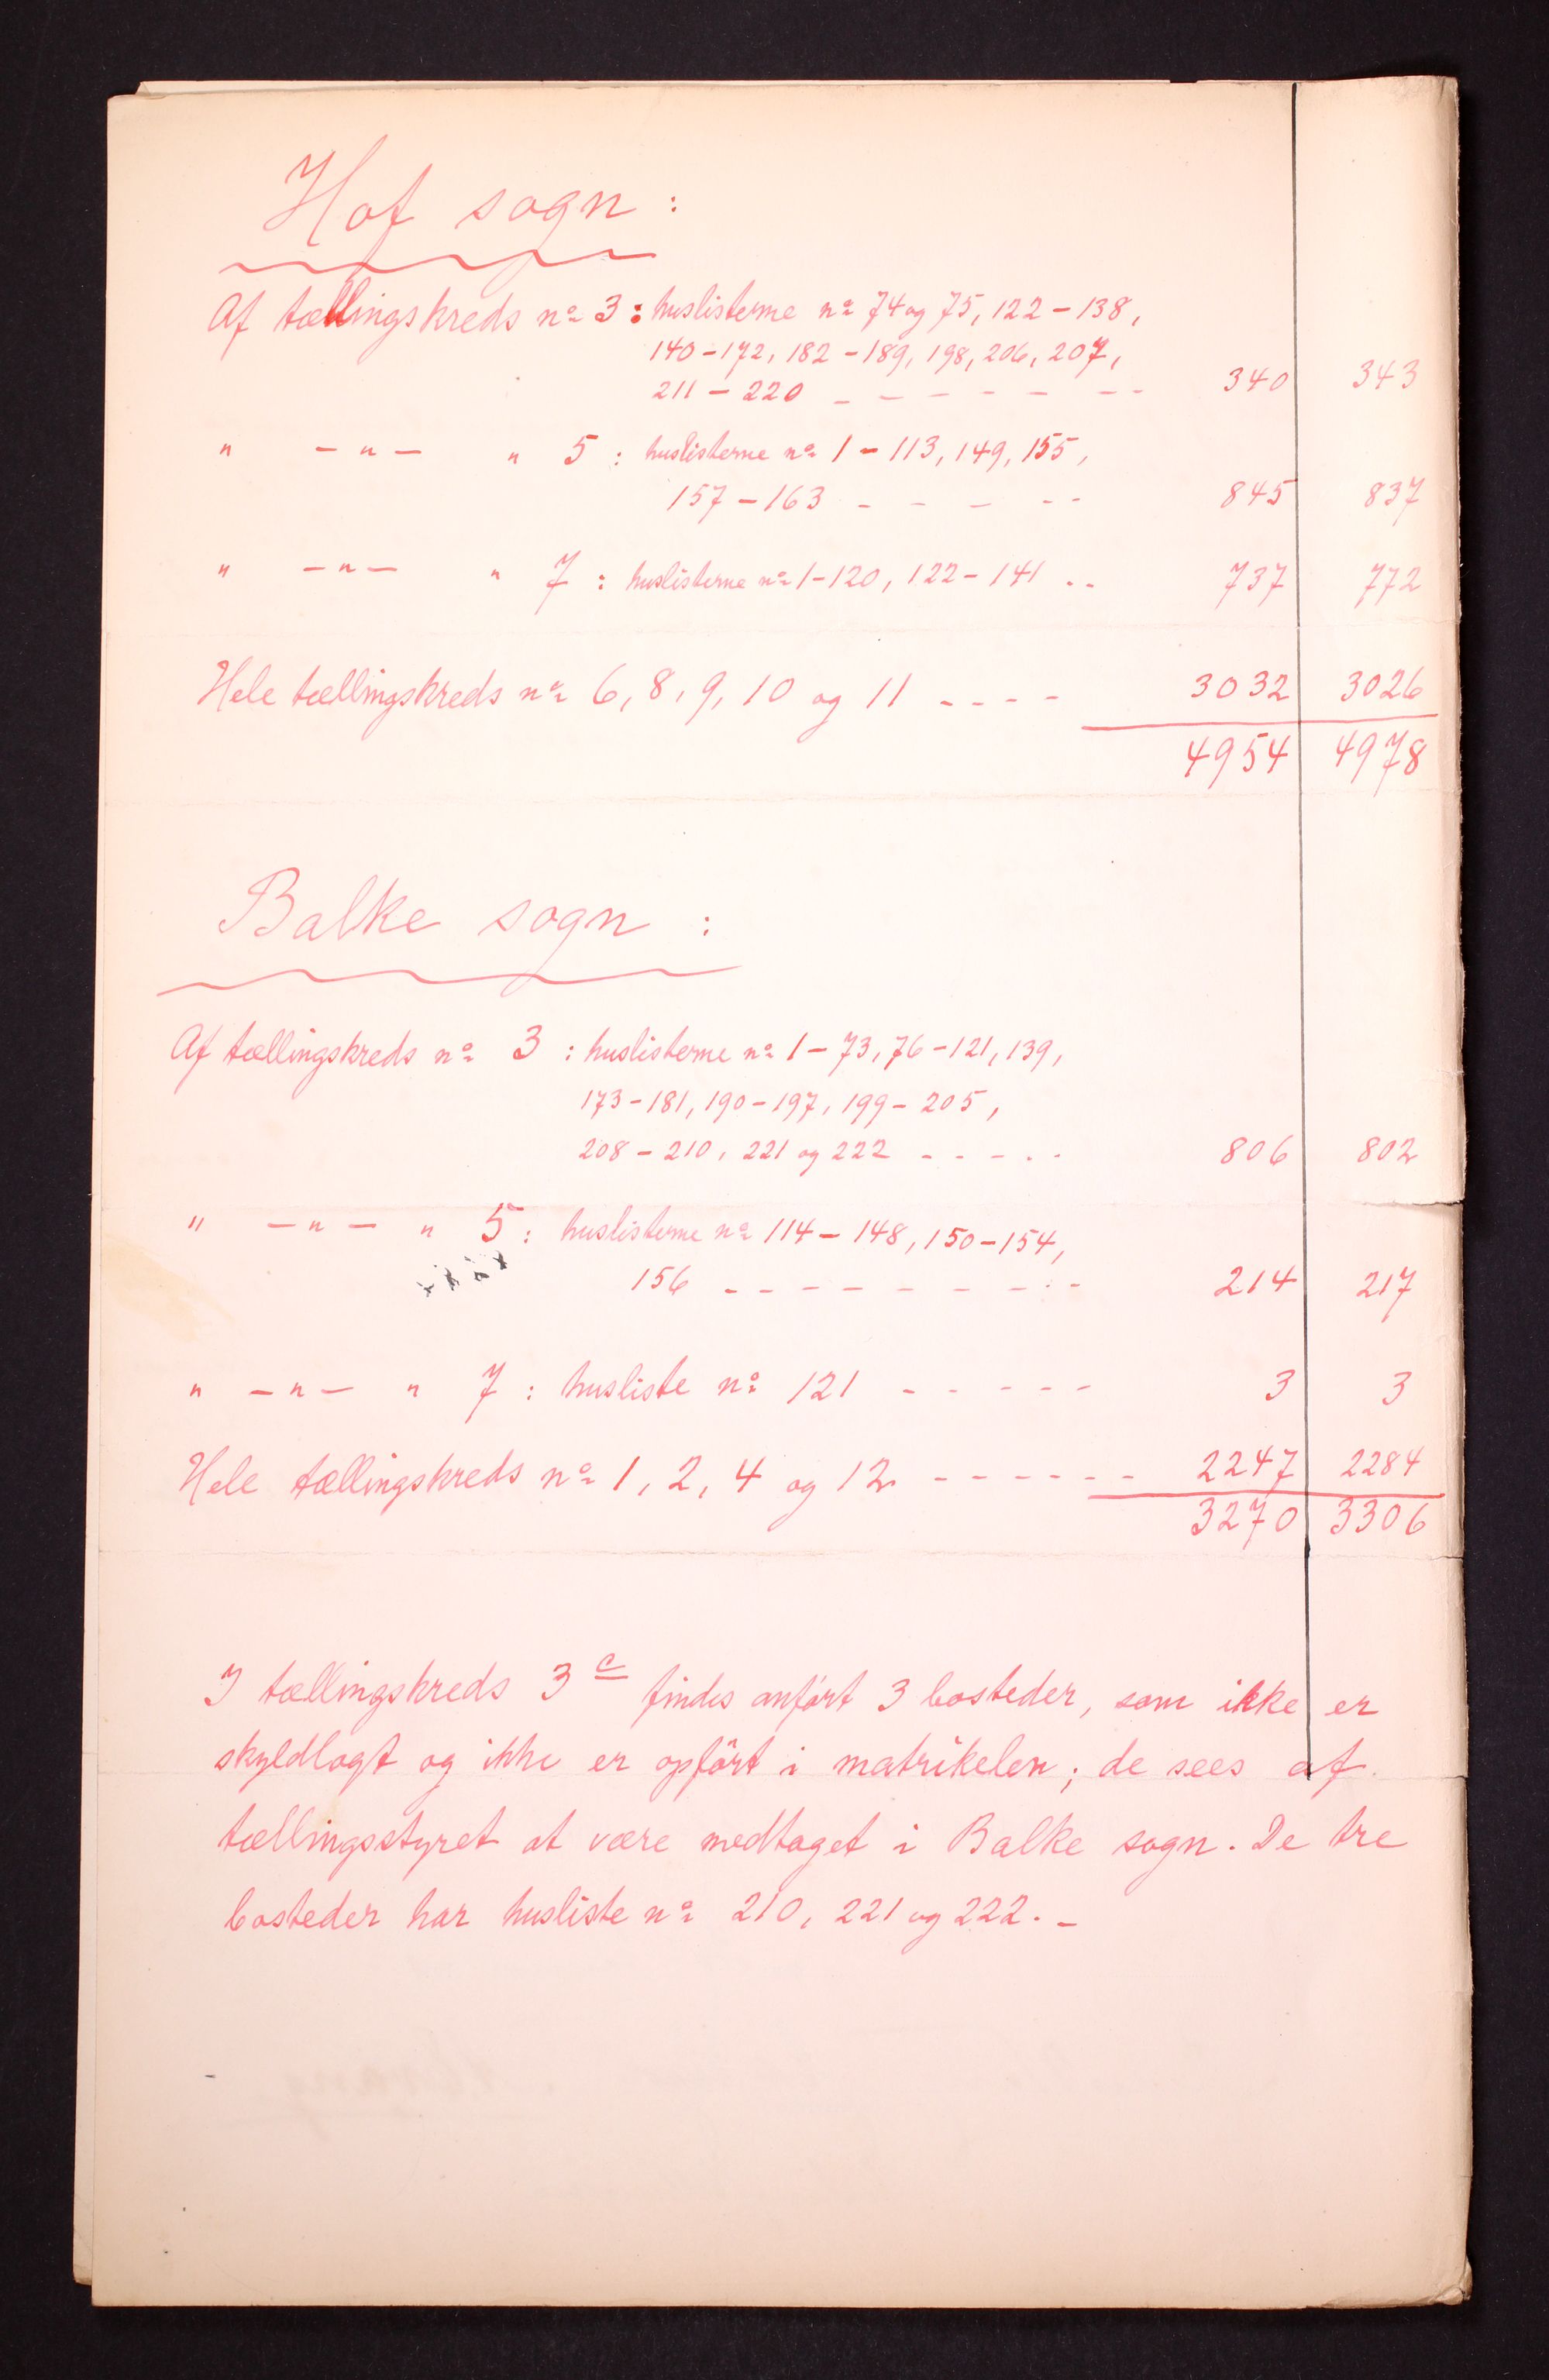 Hof sogn :
Af tællingskreds nº 3 : huslisterne nº 74 og 75, 122 – 138,
140 – 172, 182 – 189, 198, 206, 207,
211 – 220 – – – – – – – 340 343
" – " – " 5 : huslisterne nº 1 – 113, 149, 155,
157 – 163 – – – – – 845 837
" – " – " 7 : huslisterne nº 1 – 120, 122 – 141 – – 737 772
Hele tællingskreds nº 6, 8, 9, 10 og 11 – – – – 3032 3026
4954 4978
Balke sogn :
Af tællingskreds nº 3 : huslisterne nº 1 – 73, 76 – 121, 139,
173 – 181, 190 – 197, 199 – 205,
208 – 210, 221 og 222 – – – – – 806 802
" – " – " 5 : huslisterne nº 114 – 148, 150 – 154,
156 – – – – – – – – – 214 217
" – " – " 7 : husliste nº 121 – – – – – 3 3
Hele tællingskreds nº 1, 2, 4 og 12 – – – – – – 2247 2284
3270 3306
I tællingskreds 3 c findes anført 3 bosteder, som ikke er
skyldlagt og ikke er opført i matrikelen; de sees af
tællingsstyret at være medtaget i Balke sogn. De tre
bosteder har husliste nº 210, 221 og 222. –